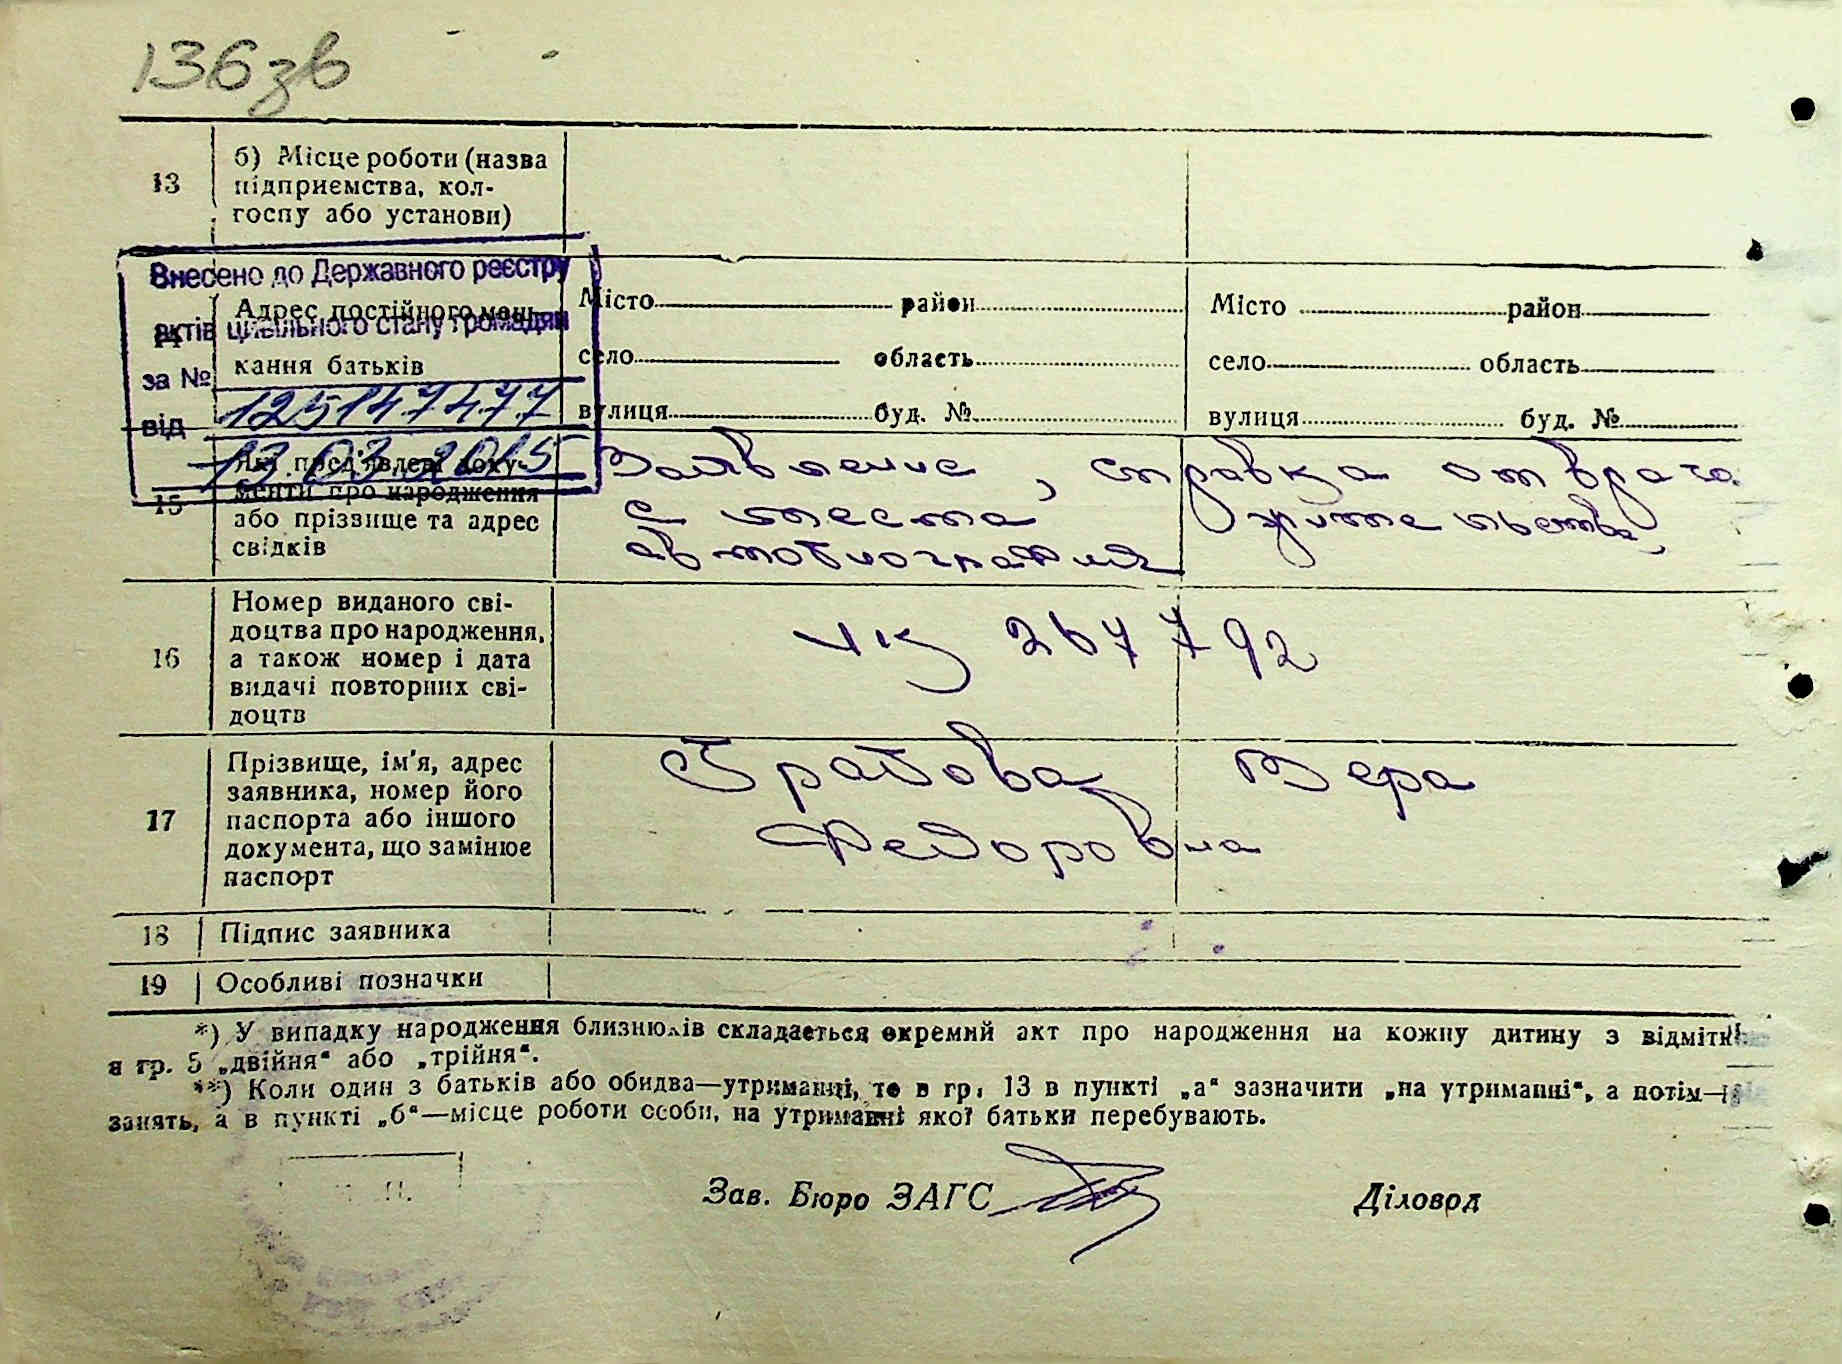 136зв
13
б) Місце роботи (назва
підприємства, кол-
госпу або установи)
Внесено до Державного реєстру
актів цивільного стану громадян
за № 12514747
від 13.03.2015
14
Адрес постійного меш-
кання батьків
Місто район Місто район
село область село область
вулиця буд. № вулиця буд. №
15
Які пред'явлені доку-
менти про народження
або прізвище та адрес
свідків
Заявление, справка от врача
с места жительства,
автобиография
16
Номер виданого сві-
доцтва про народження,
а також номер і дата
видачі повторних сві-
доцтв
267792
17
Прізвище, ім'я, адрес
заявника, номер його
паспорта або іншого
документа, що замінює
паспорт
Грабова Вера
Федоровна
18 Підпис заявника
19 Особливі позначки
*) У випадку народження близнюків складається окремий акт про народження на кожну дитину з
в гр. 5 „двійня“ або „трійня“.
**) Коли один з батьків або обидва—утриманці, то в гр. 13 в пункті „а“ зазначити „на утриманні“, а потім—
занять, а в пункті „б“—місце роботи особи, на утриманні якої батьки перебувають.
Зав. Бюро ЗАГС Діловод